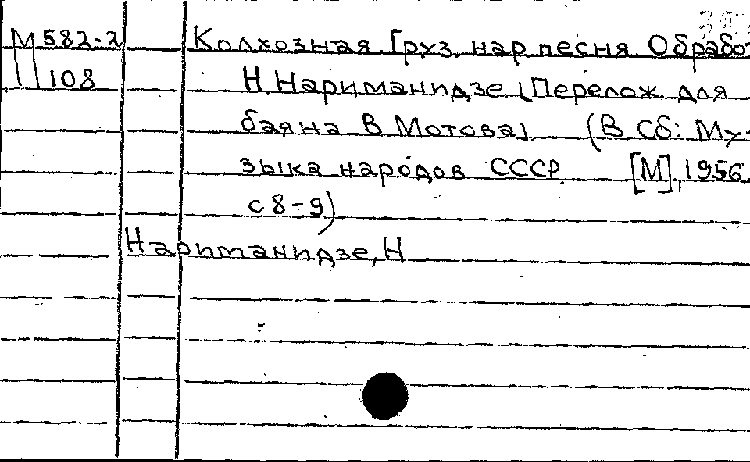 М 582-2 Колхозная Груз. нар песня Обрабо
108 Н. Нариманидзе (Перелож для
баяна В. Мотова) (В сб: Му-
зыка народов СССР [М], 1956
с 8-9)
Нариманидзе, Н